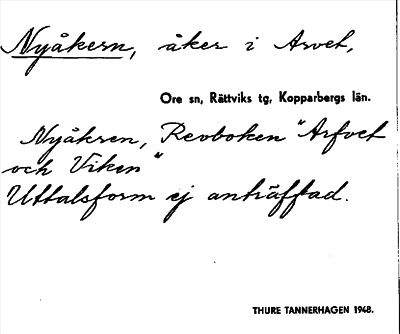 Nyåkern, åker i Arvet,
Ore sn, Rättviks tg, Kopparbergs län.
Nyåkren, Revboken "Arfvet
och Viken"
Uttalsform ej anträffad.
THURE TANNERHAGEN 1948.